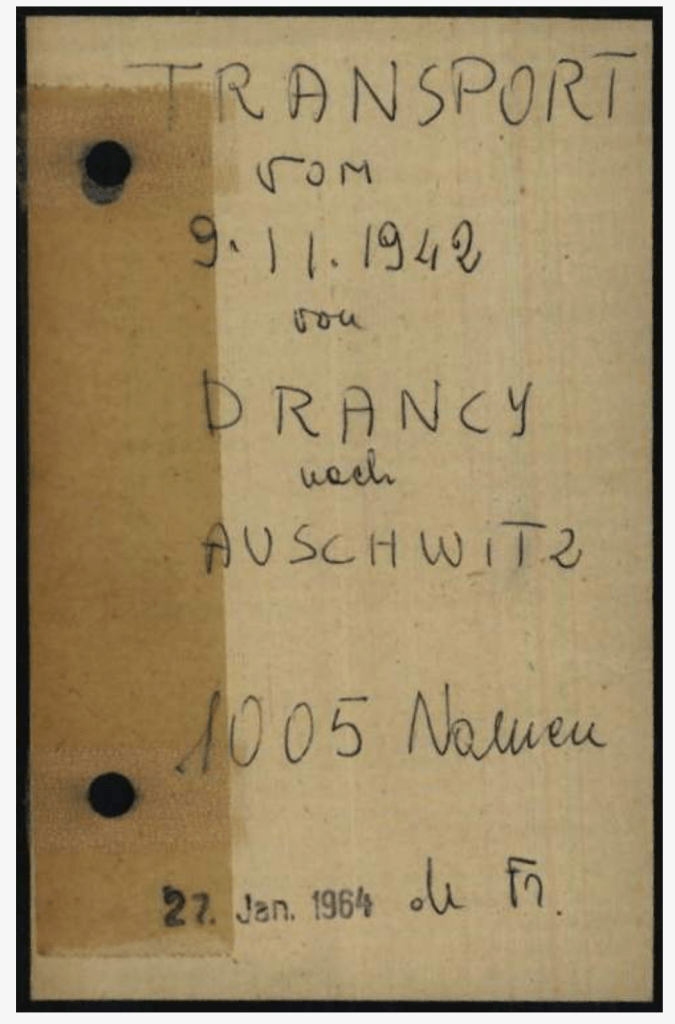 TRANSPORT
vom
9.11.1942
von
DRANCY
nach
AUSCHWITZ
1005 Namen
27. Jan. 1964 Fr.